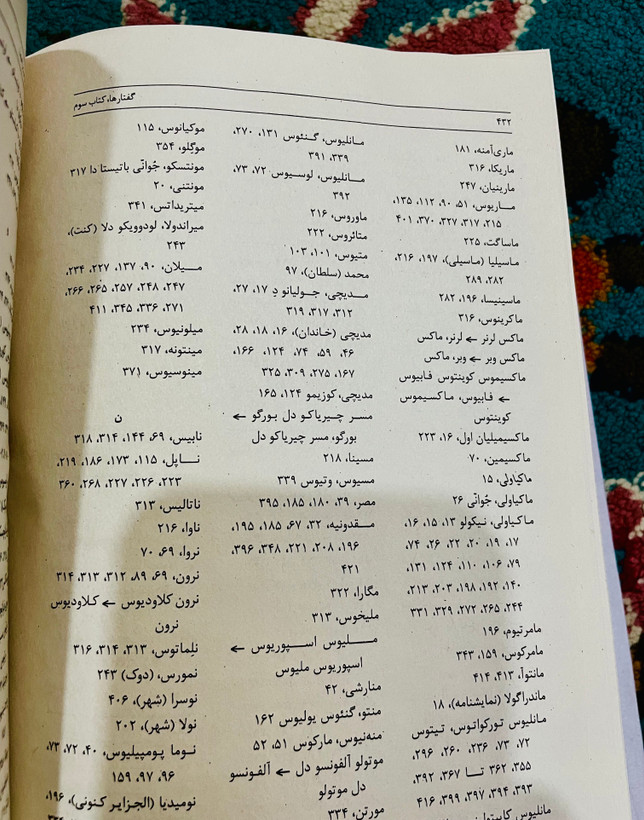 ۴۳۲
گفتارها، کتاب سوم
ماری‌آمنه، ۱۸۱
ماریکا، ۳۱۶
مارینیان، ۲۴۷
مـــاریوس، ۵۱، ۹۰، ۱۱۲، ۱۳۵،
۲۱۵، ۳۱۷، ۳۲۷، ۳۷۰، ۴۰۱
ماساگت، ۲۲۵
ماسیلیا (ماسیلی)، ۱۹۷، ۲۱۶،
۲۸۲، ۲۸۹
ماسینیسا، ۱۹۶، ۲۸۲
ماکرینوس، ۳۱۶
ماکس لرنر ← لرنر، ماکس
ماکس وبر ← وبر، ماکس
ماکسیموس کوینتوس فـابیوس
← فـابیوس، مـاکسیموس
کوینتوس
ماکسیمیلیان اول، ۱۶، ۲۲۳
ماکسیمین، ۷۰
ماکیاولی، ۱۵
ماکیاولی، جُوانّی ۲۶
مـاکیاولی، نـیکولو ۱۳، ۱۵، ۱۶،
۱۷، ۱۹، ۲۰، ۲۲، ۲۶، ۷۴،
۷۹، ۱۰۶، ۱۱۰، ۱۲۴، ۱۳۱،
۱۴۰، ۱۹۲، ۱۹۸، ۲۰۳، ۲۱۳،
۲۴۴، ۲۶۵، ۲۷۲، ۳۲۹، ۳۳۱
مامرتیوم، ۱۹۶
مامرکوس، ۱۵۹، ۳۴۳
مانتوآ، ۴۱۳، ۴۱۴
ماندراگولا (نمایشنامه)، ۱۸
مـانلیوس تـورکواتـوس، تـیتوس
۷۲، ۷۳، ۲۳۶، ۲۶۰، ۲۹۶،
۳۵۵، ۳۶۲ تـــا ۳۶۷، ۳۹۲،
۳۹۳، ۳۹۴، ۳۹۷، ۳۹۹، ۴۱۶
مـانلیوس، گـنئوس ۱۳۱، ۲۷۰،
۳۳۹، ۳۹۱
مـــانلیوس، لوســیوس ۷۲، ۷۳،
۳۹۲
ماوروس، ۲۱۶
متائروس، ۲۲۲
متیوس، ۱۰۱، ۱۰۳
محمد (سلطان)، ۹۷
مــدیچی، جــولیانو دِ ۱۷، ۲۷،
۳۱۲، ۳۱۷، ۳۱۹
مدیچی (خـاندان)، ۱۶، ۱۸، ۲۸،
۴۶، ۵۹، ۷۴، ۱۲۴، ۱۶۶،
۱۶۷، ۲۷۵، ۳۰۹، ۳۲۵
مدیچی، کوزیمو ۱۲۴، ۱۶۵
مســر چــیریاکـو دل بـورگو ←
بورگو، مسر چیریاکو دل
مسینا، ۲۱۸
مسیوس، وتیوس ۳۳۹
مصر، ۳۹، ۱۸۰، ۱۸۵، ۳۹۵
مـــقدونیه، ۳۲، ۶۷، ۱۸۵، ۱۹۵،
۱۹۶، ۲۰۸، ۲۲۱، ۳۴۸، ۳۹۶،
۴۲۱
مگارا، ۳۲۲
ملیخوس، ۳۱۳
مـــــلیوس اســـپوریوس ←
اسپوریوس ملیوس
منارشی، ۴۲
منتو، گنئوس یولیوس ۱۶۲
منه‌نیوس، مارکوس ۵۱، ۵۲
موتولو آلفونسو دل ← آلفـونسو
دل موتولو
مورتن، ۳۳۴
موکیانوس، ۱۱۵
موگِلو، ۳۵۴
مونتسکو، جُوانّی باتیستا دا ۳۱۷
مونتنی، ۲۰
میتریداتس، ۳۴۱
میراندولا، لودوویکو دلا (کنت)،
۲۴۳
مـــیلان، ۹۰، ۱۳۷، ۲۲۷، ۲۳۴،
۲۴۷، ۲۴۸، ۲۵۷، ۲۶۵، ۲۶۶،
۲۷۱، ۳۳۶، ۳۴۵، ۴۱۱
میلونیوس، ۲۳۴
مینتونه، ۳۱۷
مینوسیوس، ۳۷۱
ن
نابیس، ۶۹، ۱۴۴، ۳۱۴، ۳۱۸
نـــاپل، ۱۱۵، ۱۷۳، ۱۸۶، ۲۱۹،
۲۲۳، ۲۲۶، ۲۲۷، ۲۶۸، ۳۶۰
ناتالیس، ۳۱۳
ناوا، ۲۱۶
نروا، ۶۹، ۷۰
نرون، ۶۹، ۸۹، ۳۱۲، ۳۱۳، ۳۱۴
نرون کلاودیوس ← کـلاودیوس
نرون
نلِماتوس، ۳۱۳، ۳۱۴، ۳۱۶
نمورس، (دوک) ۲۴۳
نوسرا (شهر)، ۴۰۶
نولا (شهر)، ۲۰۲
نـوما پـومپیلیوس، ۴۰، ۷۲، ۷۳،
۹۶، ۹۷، ۱۵۹
نومیدیا (الجـزایـر کـنونی)، ۱۹۶،